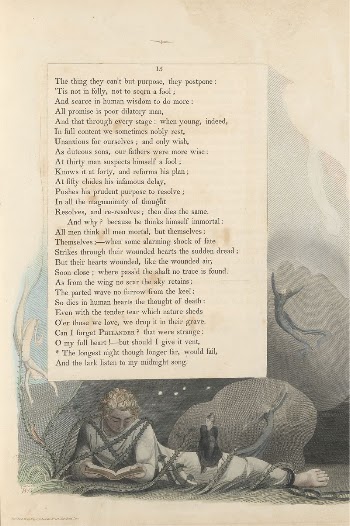 15
The thing they can't but purpose, they postpone:
'Tis not in folly, not to scorn a fool;
And scarce in human wisdom to do more:
All promise is poor dilatory man,
And that through every stage: when young, indeed,
In full content we sometimes nobly rest,
Unanxious for ourselves; and only wish,
As duteous sons, our fathers were more wise:
At thirty man suspects himself a fool;
Knows it at forty, and reforms his plan;
At fifty chides his infamous delay,
Pushes his prudent purpose to resolve;
In all the magnanimity of thought
Resolves, and re-resolves; then dies the same.
And why? because he thinks himself immortal:
All men think all men mortal, but themselves;
Themselves;—when some alarming shock of fate
Strikes through their wounded hearts the sudden dread:
But their hearts wounded, like the wounded air,
Soon close; where pass'd the shaft no trace is found.
As from the wing no scar the sky retains;
The parted wave no furrow from the keel:
So dies in human hearts the thought of death:
Even with the tender tear which nature sheds
O'er those we love, we drop it in their grave.
Can I forget PHILANDER? that were strange:
O my full heart!—but should I give it vent,
* The longest night though longer far, would fail,
And the lark listen to my midnight song.